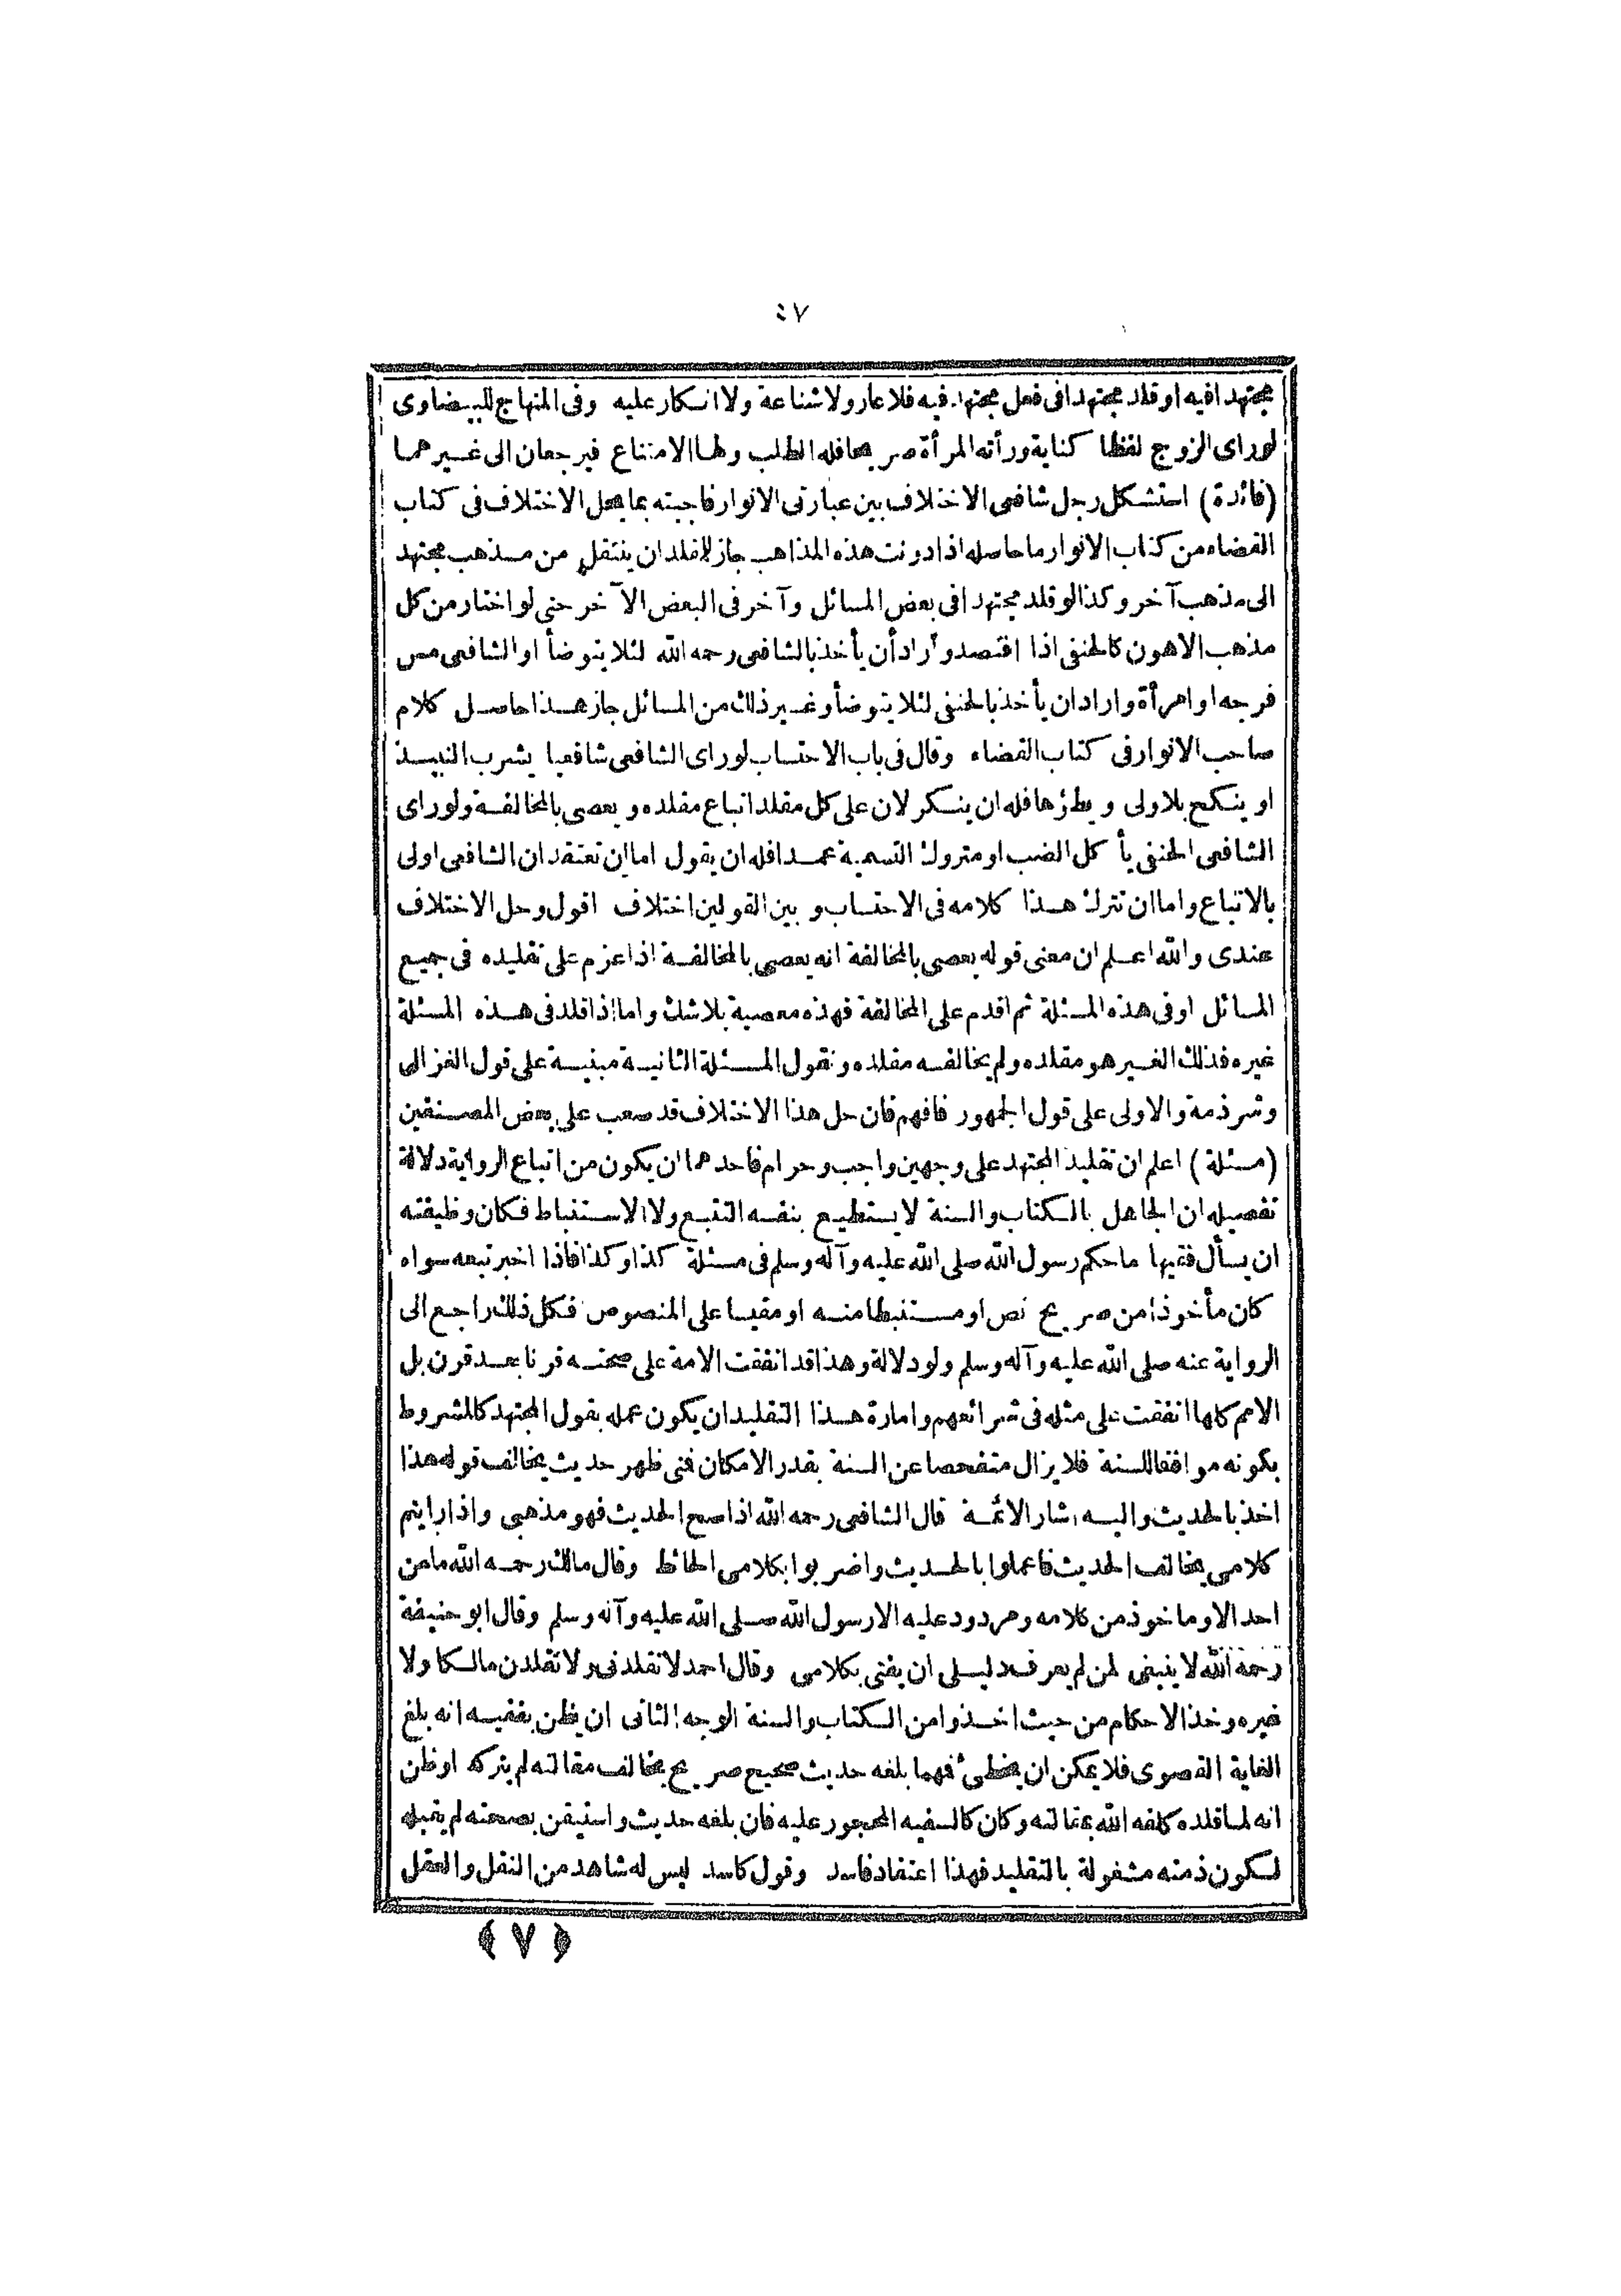 ٤٧
مجتهدا فيه او قلد مجتهدا فى فعل مجتهد فيه فلا عار ولا شناعة ولا انكار عليه وفى المنهاج للبيضاوى
لو راى الزوج لفظا كناية ورأته المرأة صريحا فله الطلب ولها الامتناع فيرجعان الى غيرهما
(فائدة) استشكل رجل شافعى الاختلاف بين عبارتى الانوار فاجبته بما يحل الاختلاف فى كتاب
القضاء من كتاب الانوار ما حاصله اذا دونت هذه المذاهب جاز للمقلد ان ينتقل من مذهب مجتهد
الى مذهب آخر وكذا لو قلد مجتهدا فى بعض المسائل وآخر فى البعض الآخر حتى لو اختار من كل
مذهب الاهون كالحنفى اذا اقتصد وأراد أن يأخذ بالشافعى رحمه الله لئلا يتوضأ او الشافعى مس
فرجه او امرأة واراد ان يأخذ بالحنفى لئلا يتوضأ وغير ذلك من المسائل جاز هذا حاصل كلام
صاحب الانوار فى كتاب القضاء وقال فى باب الاحتساب لو راى الشافعى شافعيا يشرب النبيذ
او ينكح بلا ولى ويطؤها فله ان ينكر لان على كل مقلد اتباع مقلده ويعصى بالمخالفة ولو راى
الشافعى الحنفى يأكل الضب او متروك التسمية عمدا فله ان يقول اما ان تعتقد ان الشافعى اولى
بالاتباع واما ان تترك هذا كلامه فى الاحتساب وبين القولين اختلاف اقول وحل الاختلاف
عندى والله اعلم ان معنى قوله يعصى بالمخالفة انه يعصى بالمخالفة اذا عزم على تقليده فى جميع
المسائل او فى هذه المسئلة ثم اقدم على المخالفة فهذه معصية بلا شك واما اذا قلد فى هذه المسئلة
غيره فذلك الغير هو مقلده ولم يخالفه مقلده ونقول المسئلة الثانية مبنية على قول الغزالى
وشرذمة والاولى على قول الجمهور فافهم فان حل هذا الاختلاف قد صعب على بعض المصنفين
(مسئلة) اعلم ان تقليد المجتهد على وجهين واجب وحرام فاحدهما ان يكون من اتباع الرواية دلالة
تفصيله ان الجاهل بالكتاب والسنة لا يستطيع بنفسه التتبع ولا الاستنباط فكان وظيفته
ان يسأل فقيها ما حكم رسول الله صلى الله عليه وآله وسلم فى مسئلة كذا وكذا فاذا اخبر تبعه سواء
كان مأخوذا من صريح نص او مستنبطا منه او مقيسا على المنصوص فكل ذلك راجع الى
الرواية عنه صلى الله عليه وآله وسلم ولو دلالة وهذا قد اتفقت الامة على صحته قرنا بعد قرن بل
الامم كلها اتفقت على مثله فى شرائعهم وامارة هذا التقليد ان يكون عمله بقول المجتهد كالمشروط
بكونه موافقا للسنة فلا يزال متفحصا عن السنة بقدر الامكان فتى ظهر حديث يخالف قوله هذا
اخذ بالحديث واليه اشار الائمة قال الشافعى رحمه الله اذا صح الحديث فهو مذهبى واذا رايتم
كلامى يخالف الحديث فاعملوا بالحديث واضربوا بكلامى الحائط وقال مالك رحمه الله ما من
احد الا وماخوذ من كلامه ومردود عليه الا رسول الله صلى الله عليه وآله وسلم وقال ابو حنيفة
رحمه الله لا ينبغى لمن لم يعرف دليلى ان يفتى بكلامى وقال احمد لا تقلدنى ولا تقلدن مالكا ولا
غيره وخذ الاحكام من حيث اخذوا من الكتاب والسنة الوجه الثانى ان يظن بفقيه انه بلغ
الغاية القصوى فلا يمكن ان يخطئ فهما بلغه حديث صحيح صريح يخالف مقالته لم يتركه او ظن
انه لما قلده كلفه الله بمقالته وكان كالسفيه المحجور عليه فان بلغه حديث واستيقن بصحته لم يقبله
لكون ذمته مشغولة بالتقليد فهذا اعتقاد فاسد وقول كاسد ليس له شاهد من النقل والعقل
﴿ ٧ ﴾